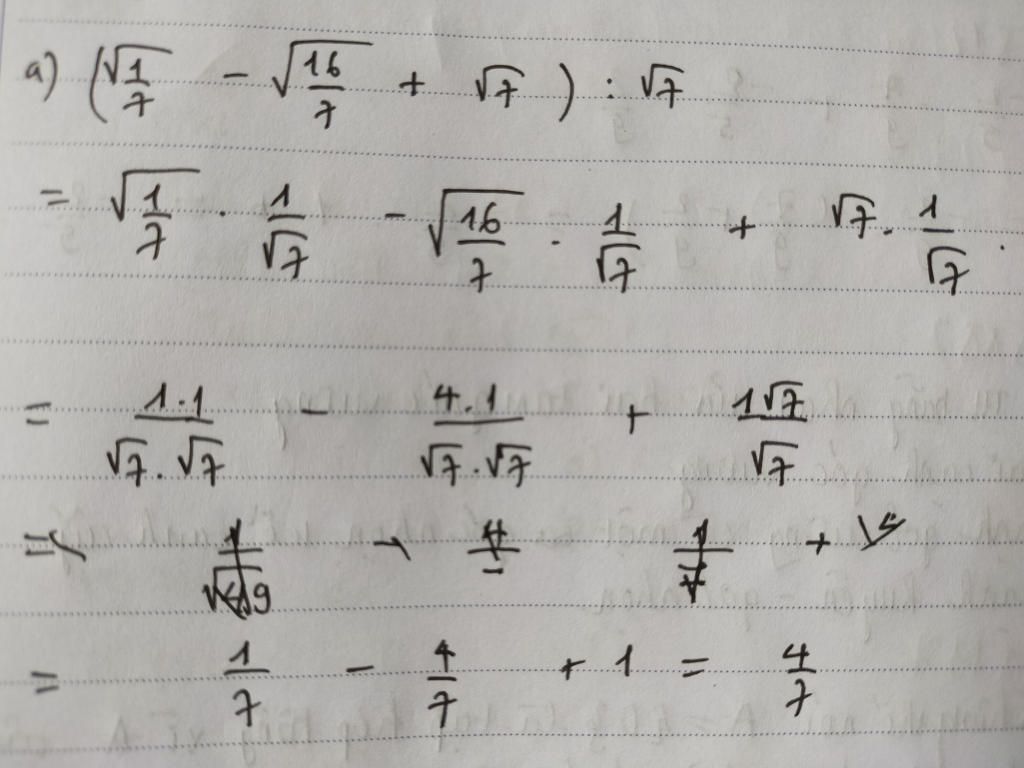 a) (√(1/7) - √(16/7) + √7) : √7
= √(1/7) . 1/√7 - √(16/7) . 1/√7 + √7 . 1/√7 .
= 1.1/(√7.√7) - 4.1/(√7.√7) + 1√7/√7
= 1/7 - 4/7 + 1 = 4/7